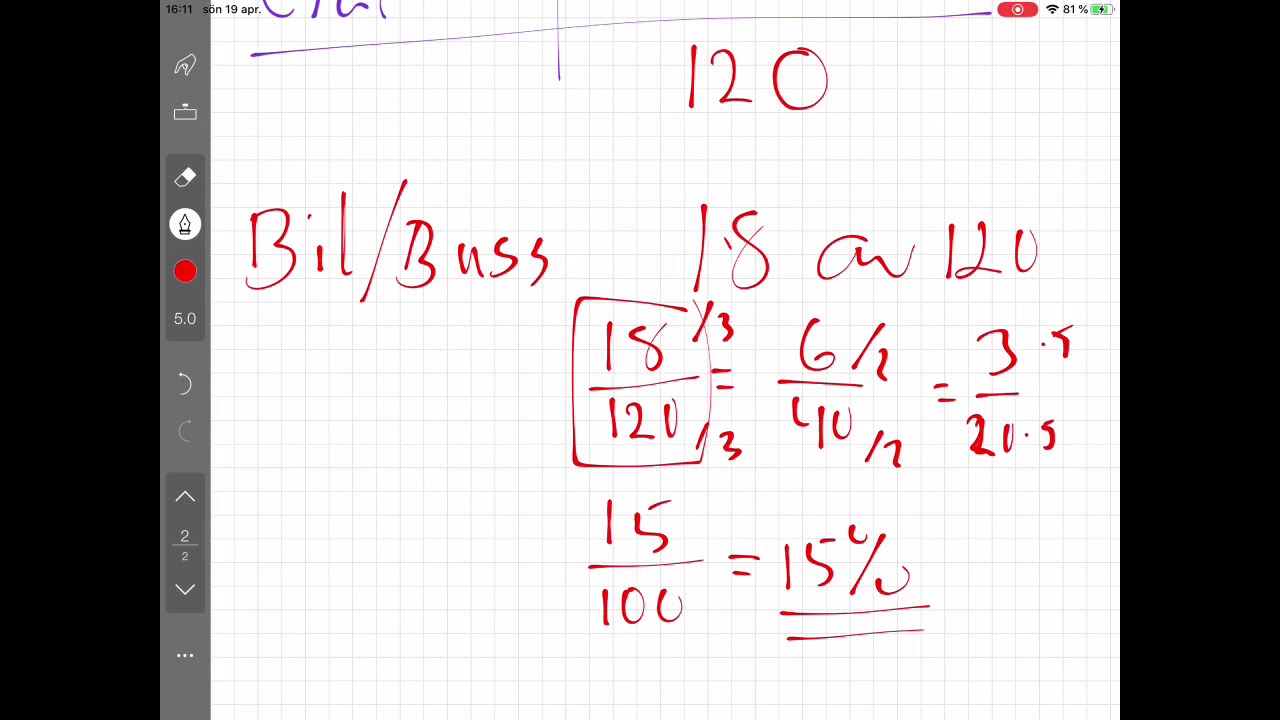 16:11 sön 19 apr. 81 %
120
Bil/Buss 18 av 120
18/3 = 6/2 = 3·5
120/3 40/2 20·5
5.0
15 = 15%
100
2
2